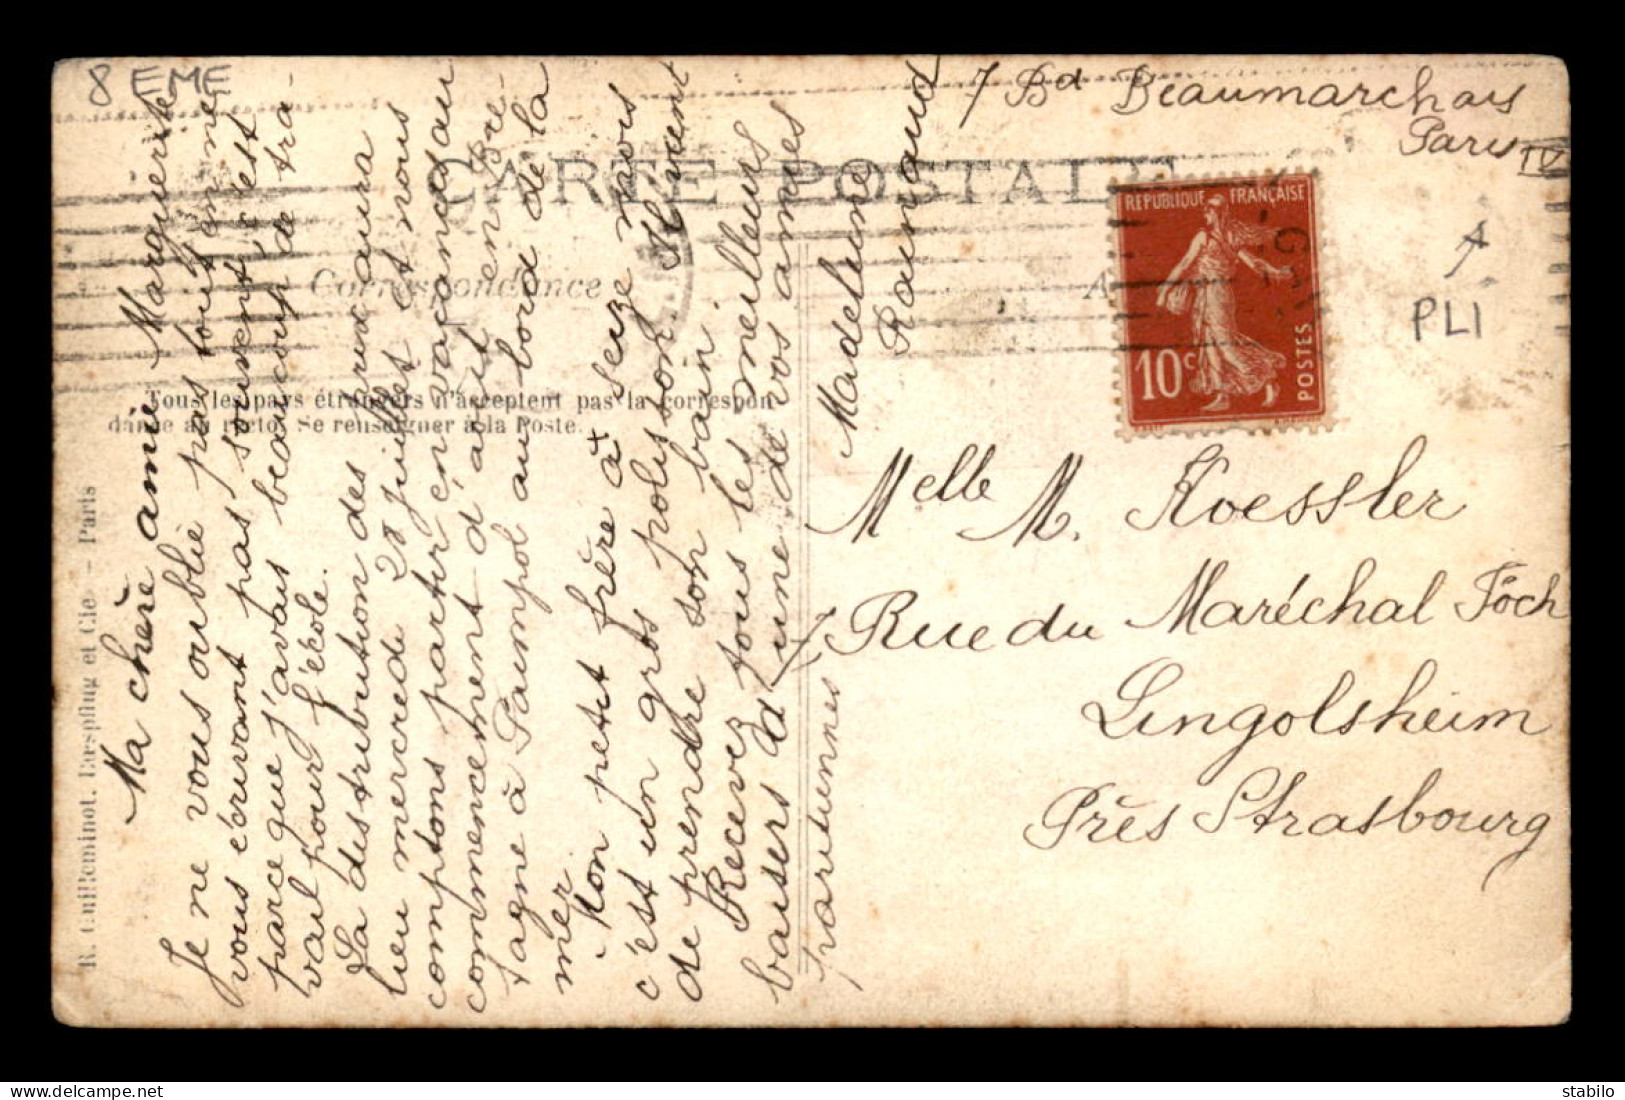 8 EME
7 Bd Beaumarchais
Paris IV
CARTE POSTALE
Correspondance
A
REPUBLIQUE FRANÇAISE
10c
POSTES
PLI
Tous les pays étrangers n'acceptent pas la correspon-
dance au recto. Se renseigner à la Poste.
R. Guilleminot, Bœspflug et Cie - Paris
Ma chère amie Marguerite
Je ne vous oublie pas tout en ne
vous écrivant pas souvent c'est
parce que j'avais beaucoup de tra-
vail pour l'école.
La distribution des prix aura
lieu mercredi 28 juillet et nous
comptons partir en vacances au
commencement d'août en Bre-
tagne à Paimpol au bord de la
mer.
Mon petit frère a seize mois
c'est un gros polisson. Il vient
de prendre son bain.
Recevez tous les meilleurs
baisers d'une de vos amies
parisiennes
Madeleine
Raimaud
Melle M. Koessler
7 Rue du Maréchal Foch
Lingolsheim
Près Strasbourg
stabilo